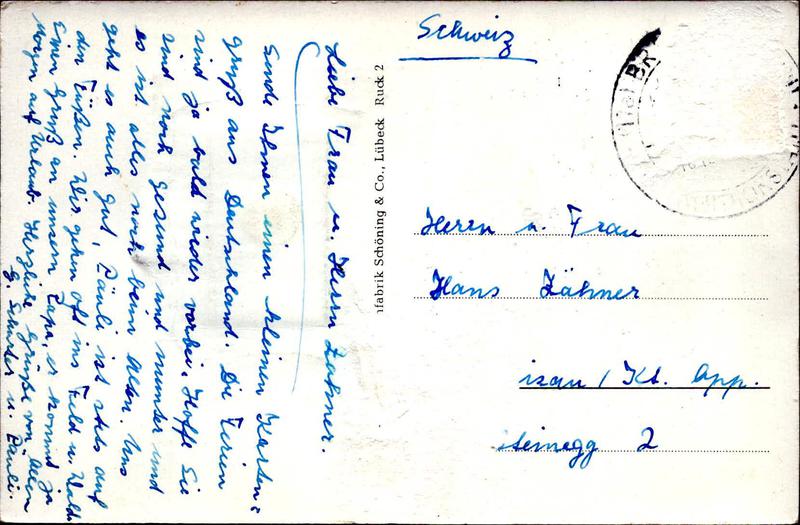 Liebe Frau u. Herrn Zähner.
Sende Ihnen einen kleinen Karten=
gruß aus Deutschland. Die Ferien
sind ja bald wieder vorbei. Hoffe Sie
sind noch gesund und munter und
es ist alles noch beim Alten. Uns
geht es auch gut, Päuli ist stets auf
den Füßen. Wir gehen oft ins Feld u. Wald.
Einen Gruß an unsern Papa, er kommt ja
morgen auf Urlaub. Herzliche Grüße von allen
G. Schuster u. Päuli.
nfabrik Schöning & Co., Lübeck Ruck 2
Schweiz
Herrn u. Frau
Hans Zähner
izau / Kt. App.
steinegg 2